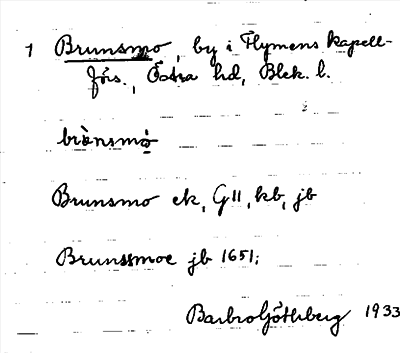 1 Brunsmo, by i Flymens kapell-
förs., Östra hd, Blek. l.
brùnsmọ̀
Brunsmo ek, G11, kb, jb
Brunssmoe jb 1651;
Barbro Göthberg 1933